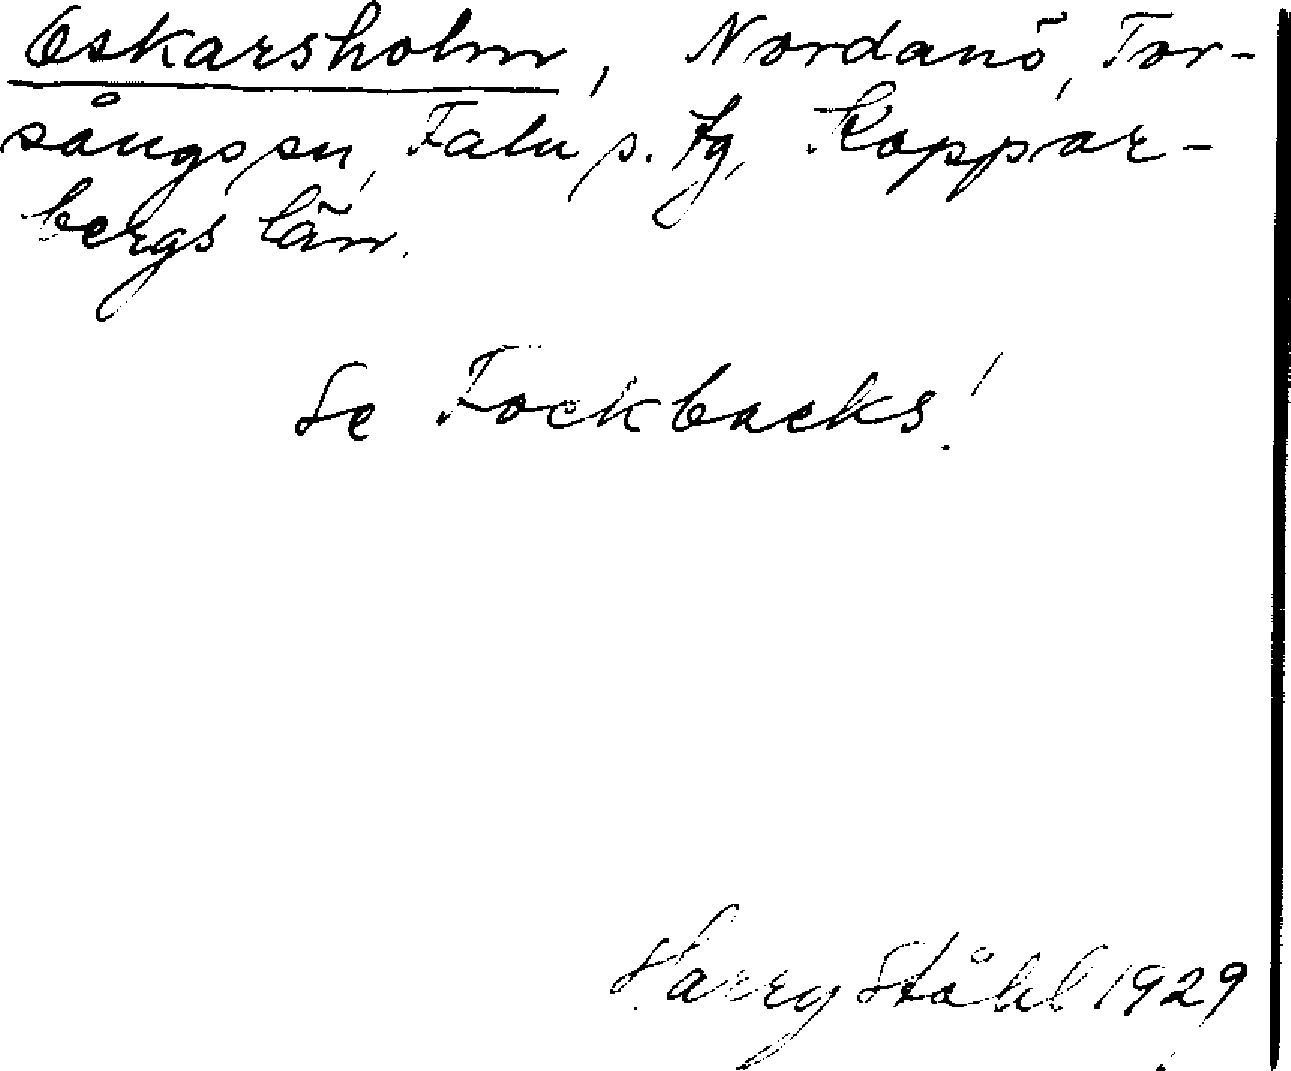 Oskarsholm, Nordanö, Tor-
sångs sn, Falu s. tg, Koppar-
bergs län.
Se Fockbacks!
Harry Ståhl 1929